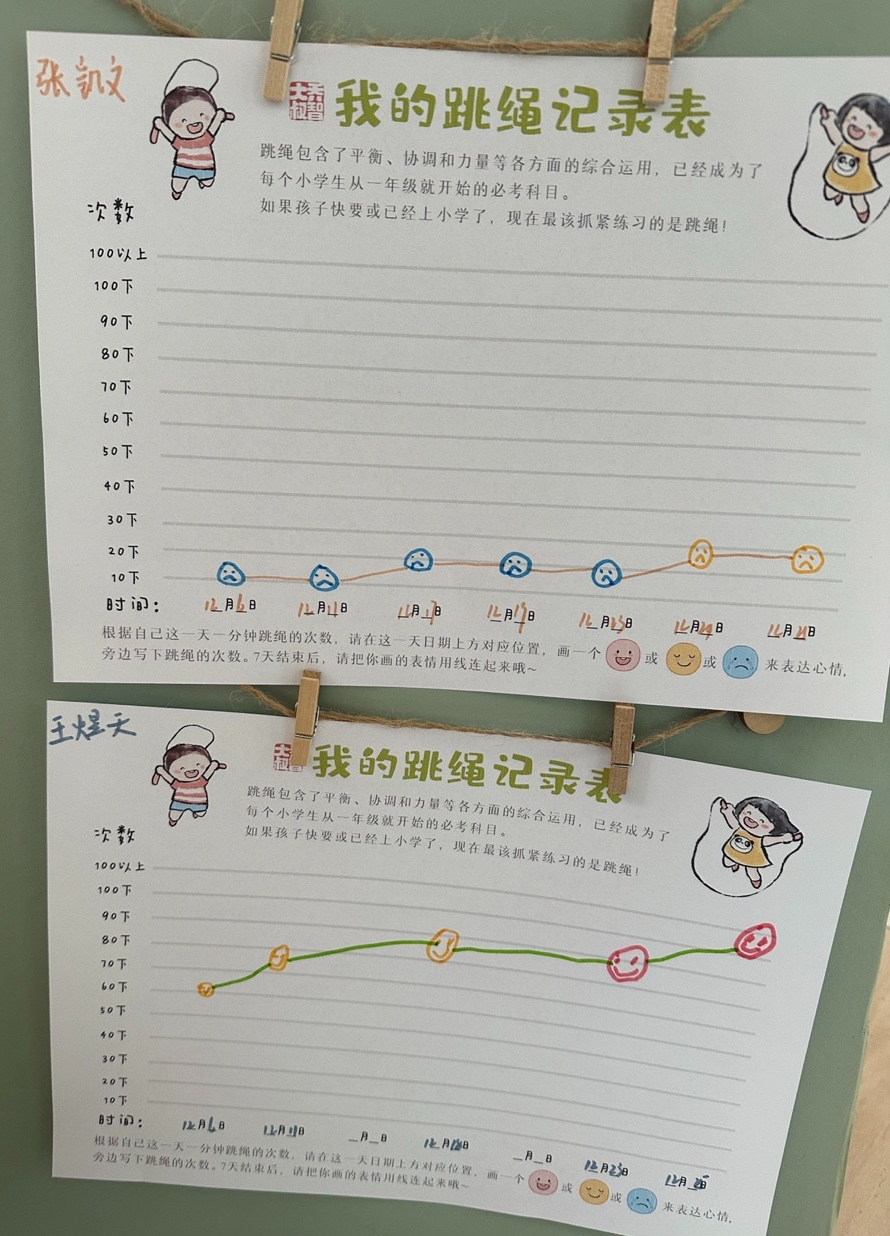 张凯文
大禾叔智
我的跳绳记录表
跳绳包含了平衡、协调和力量等各方面的综合运用，已经成为了
每个小学生从一年级就开始的必考科目。
如果孩子快要或已经上小学了，现在最该抓紧练习的是跳绳！
次数
100以上
100下
90下
80下
70下
60下
50下
40下
30下
20下
10下
时间：
12月6日 12月11日 12月17日 12月19日 12月23日 12月24日 12月 日
根据自己这一天一分钟跳绳的次数，请在这一天日期上方对应位置，画一个 或 或 来表达心情，
旁边写下跳绳的次数。7天结束后，请把你画的表情用线连起来哦~
王煜天
我的跳绳记录表
跳绳包含了平衡、协调和力量等各方面的综合运用，已经成为了
每个小学生从一年级就开始的必考科目。
如果孩子快要或已经上小学了，现在最该抓紧练习的是跳绳！
次数
100以上
100下
90下
80下
70下
60下
50下
40下
30下
20下
10下
时间：
12月6日 12月11日 _月_日 12月 日 _月_日 12月23日 12月 日
根据自己这一天一分钟跳绳的次数，请在这一天日期上方对应位置，画一个 或 或 来表达心情，
旁边写下跳绳的次数。7天结束后，请把你画的表情用线连起来哦~